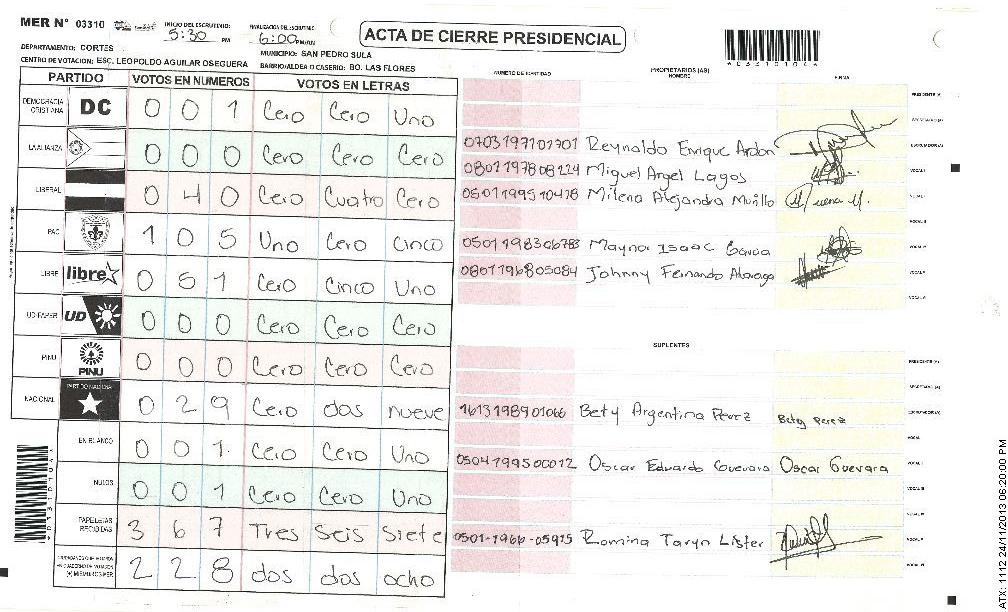 MER N° 03310 INICIO DEL ESCRUTINIO: 5:30 PM FINALIZACION DEL ESCRUTINIO: 6:00 PM
ACTA DE CIERRE PRESIDENCIAL
DEPARTAMENTO: CORTES MUNICIPIO: SAN PEDRO SULA
CENTRO DE VOTACION: ESC. LEOPOLDO AGUILAR OSEGUERA BARRIO/ALDEA O CASERIO: BO. LAS FLORES
PARTIDO VOTOS EN NUMEROS VOTOS EN LETRAS
DEMOCRACIA CRISTIANA DC 0 0 1 Cero Cero Uno
LA ALIANZA 0 0 0 Cero Cero Cero
LIBERAL 0 4 0 Cero Cuatro Cero
PAC 1 0 5 Uno Cero Cinco
LIBRE libre 0 51 Cero Cinco Uno
UD-FAPER UD 0 0 0 Cero Cero Cero
PINU PINU 0 0 0 Cero Cero Cero
NACIONAL PARTIDO NACIONAL 0 2 9 Cero dos nueve
EN BLANCO 0 0 1. Cero Cero Uno
NULOS 0 0 1 Cero Cero Uno
PAPELETAS RECIBIDAS 3 6 7 Tres Seis Siete
(+) MIEMBROS MER 2 2 8 dos dos ocho
NUMERO DE IDENTIDAD PROPIETARIOS (AS) NOMBRE FIRMA
PRESIDENTE (A)
SECRETARIO (A)
0703197101701 Reynaldo Enrique Ardon ESCRUTADOR (A)
0801197808224 Miguel Angel Lagos VOCAL I
0501199510418 Milena Alejandra Murillo
0501198306783 Maynor Isaac
0801196805084 Johnny Fernando
SUPLENTES
PRESIDENTE (A)
SECRETARIO (A)
1613198901066 Bety Argentina Perez Bety Perez ESCRUTADOR (A)
0504199500012 Oscar Eduardo Guevara Oscar Guevara
0501-1966-05915 Romina Taryn Lister
*03310104*
ATX: 1112 24/11/2013 06:20:00 PM